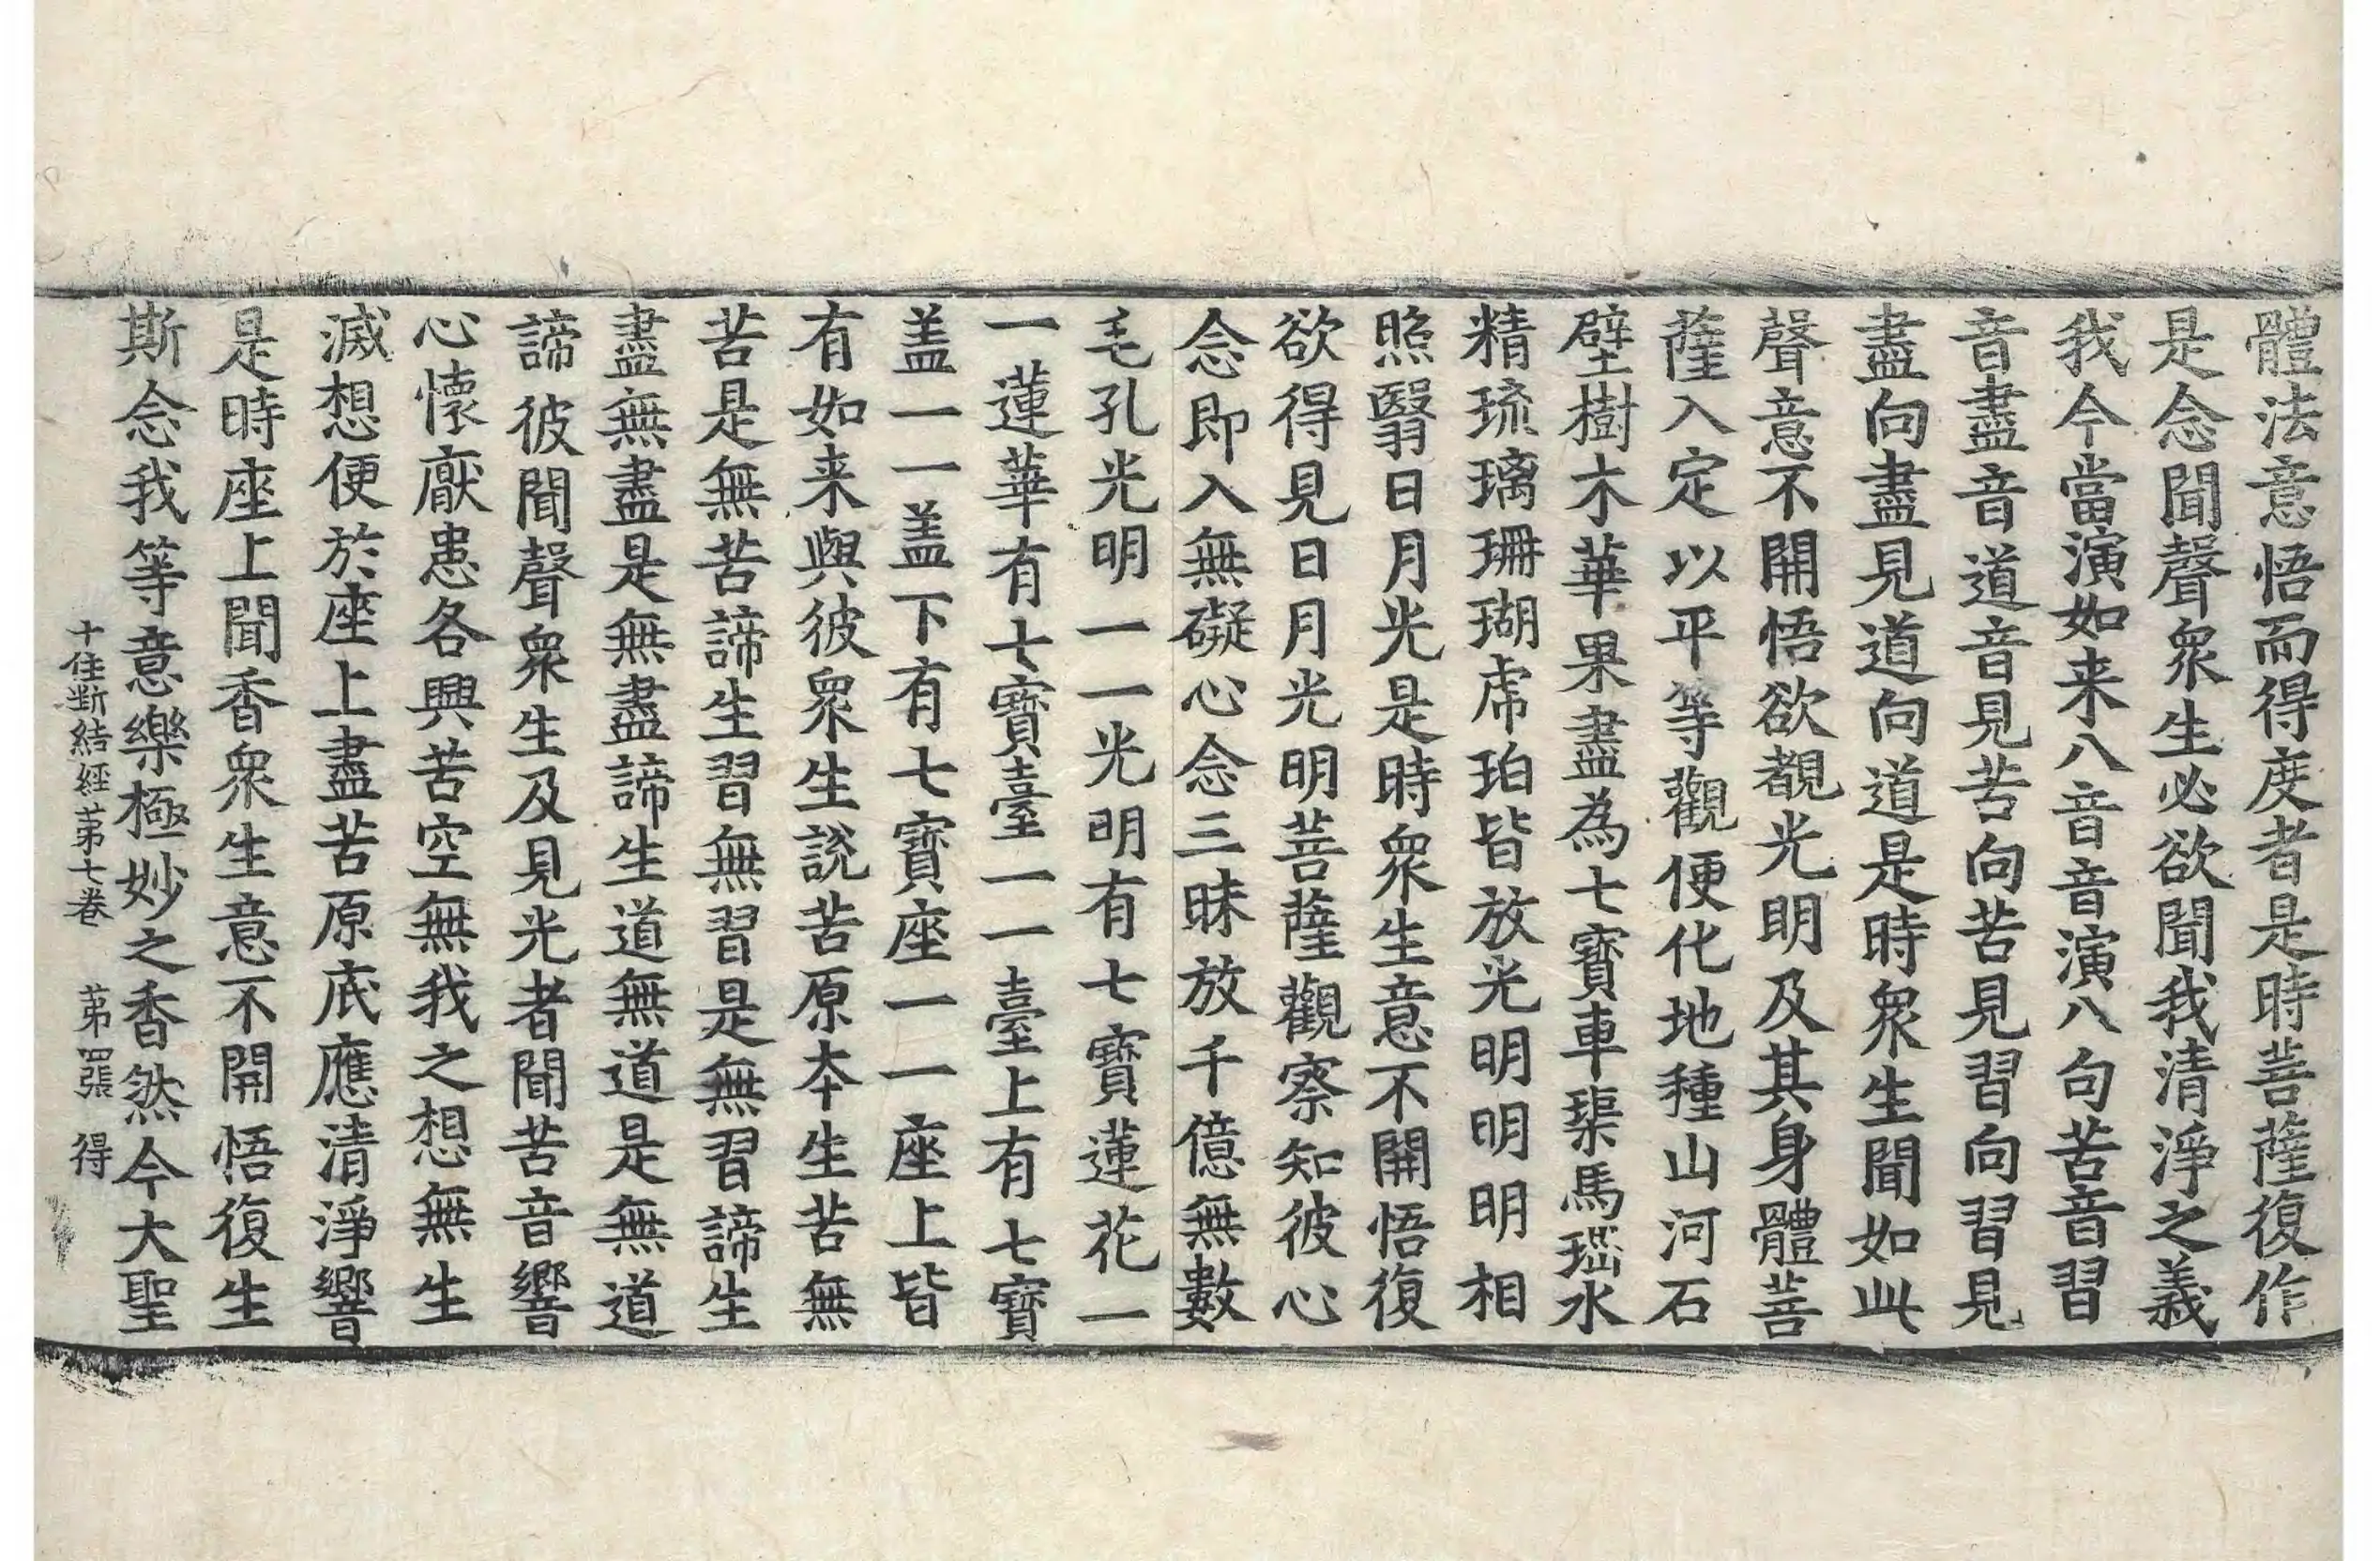 體法意悟而得度者是時菩薩復作
是念聞聲衆生必欲聞我清淨之義
我今當演如来八音音演八句苦音習
音盡音道音見苦向苦見習向習見
盡向盡見道向道是時衆生聞如此
聲意不開悟欲覩光明及其身體菩
薩入定以平等觀便化地種山河石
壁樹木華果盡為七寶車璖馬瑙水
精琉璃珊瑚虎珀皆放光明明明相
照翳日月光是時衆生意不開悟復
欲得見日月光明菩薩觀察知彼心
念即入無礙心念三昧放千億無數
毛孔光明一一光明有七寶蓮花一
一蓮華有七寶臺一一臺上有七寶
盖一一盖下有七寶座一一座上皆
有如来與彼衆生說苦原本生苦無
苦是無苦諦生習無習是無習諦生
盡無盡是無盡諦生道無道是無道
諦彼聞聲衆生及見光者聞苦音響
心懷厭患各興苦空無我之想無生
滅想便於座上盡苦原底應清淨響
是時座上聞香衆生意不開悟復生
斯念我等意樂極妙之香然今大聖
十住斷結經苐七卷 苐四張 得